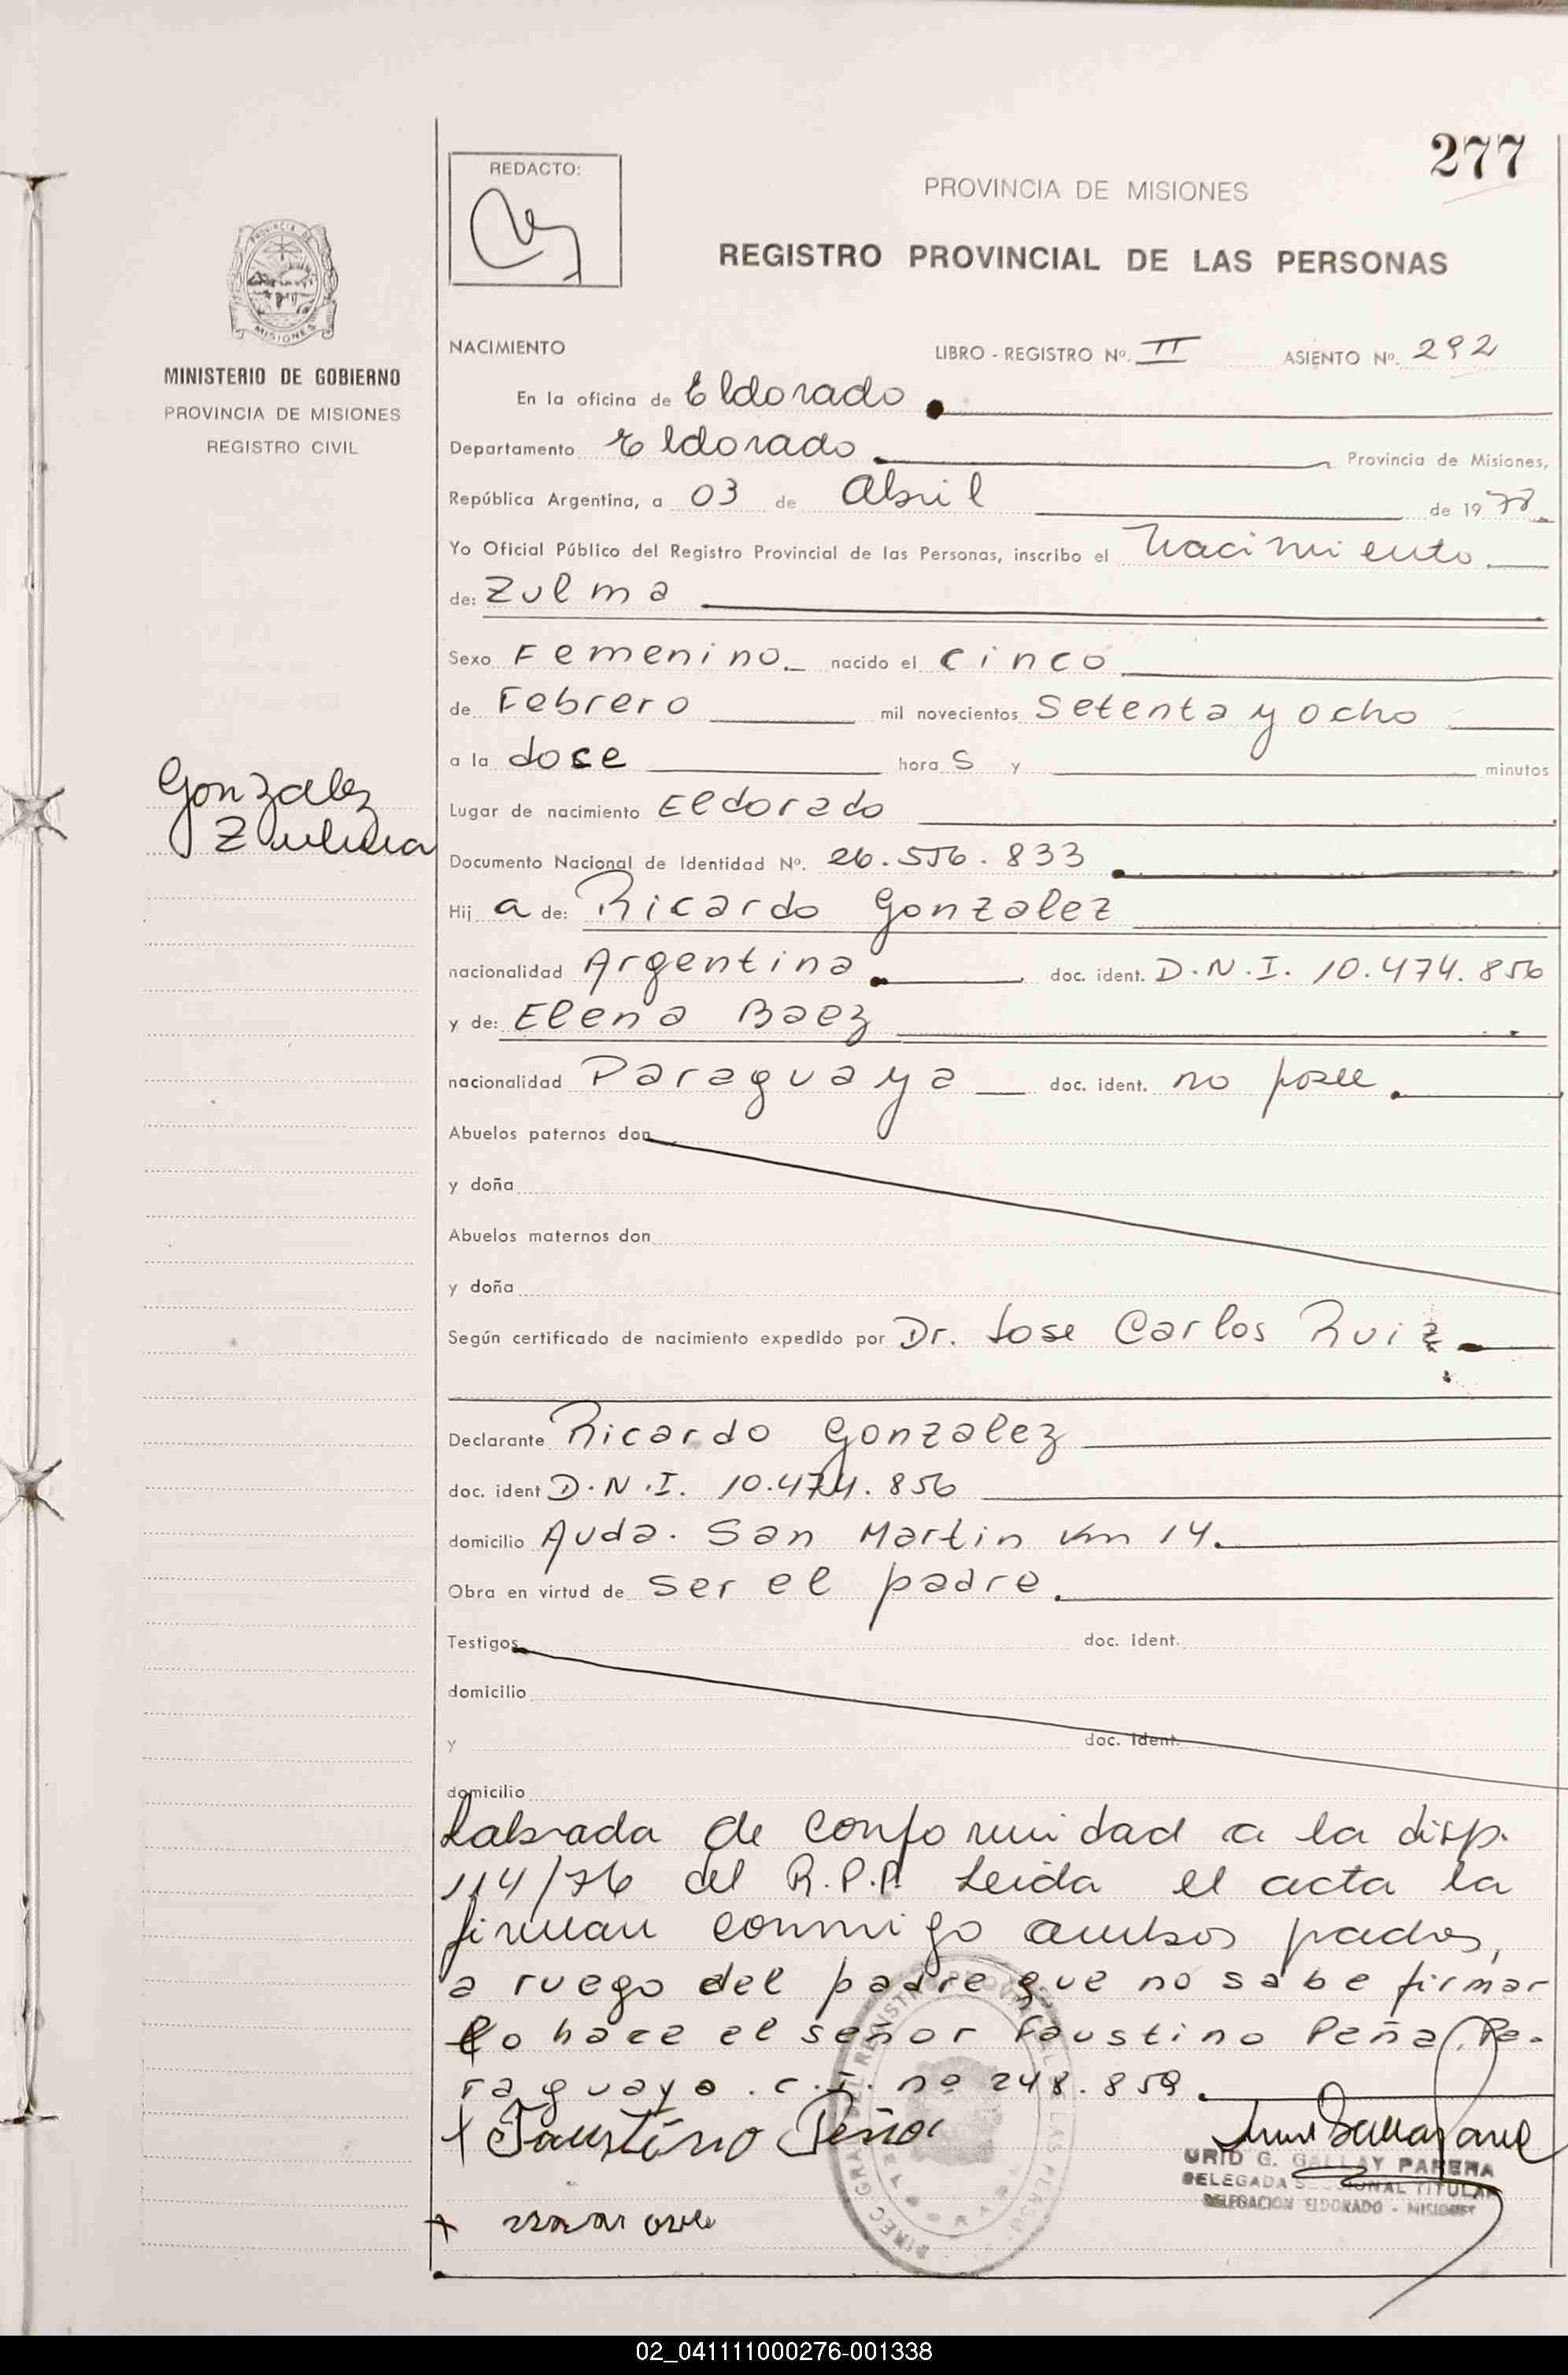 277
REDACTO:
PROVINCIA DE MISIONES
REGISTRO PROVINCIAL DE LAS PERSONAS
MISIONES
MINISTERIO DE GOBIERNO
PROVINCIA DE MISIONES
REGISTRO CIVIL
NACIMIENTO LIBRO - REGISTRO Nº. II ASIENTO Nº. 292
En la oficina de Eldorado
Departamento Eldorado Provincia de Misiones,
República Argentina, a 03 de Abril de 1978
Yo Oficial Público del Registro Provincial de las Personas, inscribo el Nacimiento
de: Zulma
Sexo Femenino. nacido el cinco
de Febrero mil novecientos Setenta y ocho
a la doce hora S y minutos
Gonzalez
Zulma
Lugar de nacimiento Eldorado
Documento Nacional de Identidad Nº. 26.556.833
Hij a de: Ricardo Gonzalez
nacionalidad Argentina. doc. ident. D.N.I. 10.474.856
y de: Elena Baez
nacionalidad Paraguaya doc. ident. no posee.
Abuelos paternos don
y doña
Abuelos maternos don
y doña
Según certificado de nacimiento expedido por Dr. Jose Carlos Ruiz
Declarante Ricardo Gonzalez
doc. ident D.N.I. 10.474.856
domicilio Avda. San Martin Km 14.
Obra en virtud de ser el padre.
Testigos doc. ident.
domicilio
y doc. ident.
domicilio
Labrada de conformidad a la disp.
114/76 del R.P.P. Leida el acta la
firman conmigo ambos padres,
a ruego del padre que no sabe firmar
lo hace el señor Faustino Peña, Pa-
raguayo. c.I. nº 248.859.
Faustino Peña
URID G. GALLAY PARERA
DELEGADA SECCIONAL TITULAR
DELEGACION ELDORADO - MISIONES
02_041111000276-001338